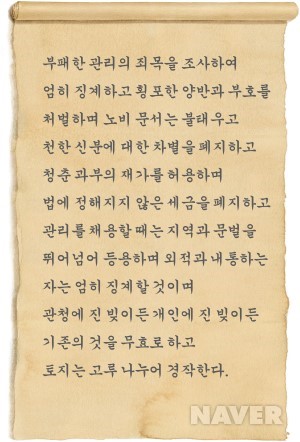 부패한 관리의 죄목을 조사하여
엄히 징계하고 횡포한 양반과 부호를
처벌하며 노비 문서는 불태우고
천한 신분에 대한 차별을 폐지하고
청춘 과부의 재가를 허용하며
법에 정해지지 않은 세금을 폐지하고
관리를 채용할 때는 지역과 문벌을
뛰어넘어 등용하며 외적과 내통하는
자는 엄히 징계할 것이며
관청에 진 빚이든 개인에 진 빚이든
기존의 것을 무효로하고
토지는 고루 나누어 경작한다.
NAVER